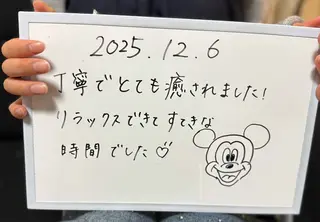 2025.12.6
丁寧でとても癒されました!
リラックスできてすてきな
時間でした♡